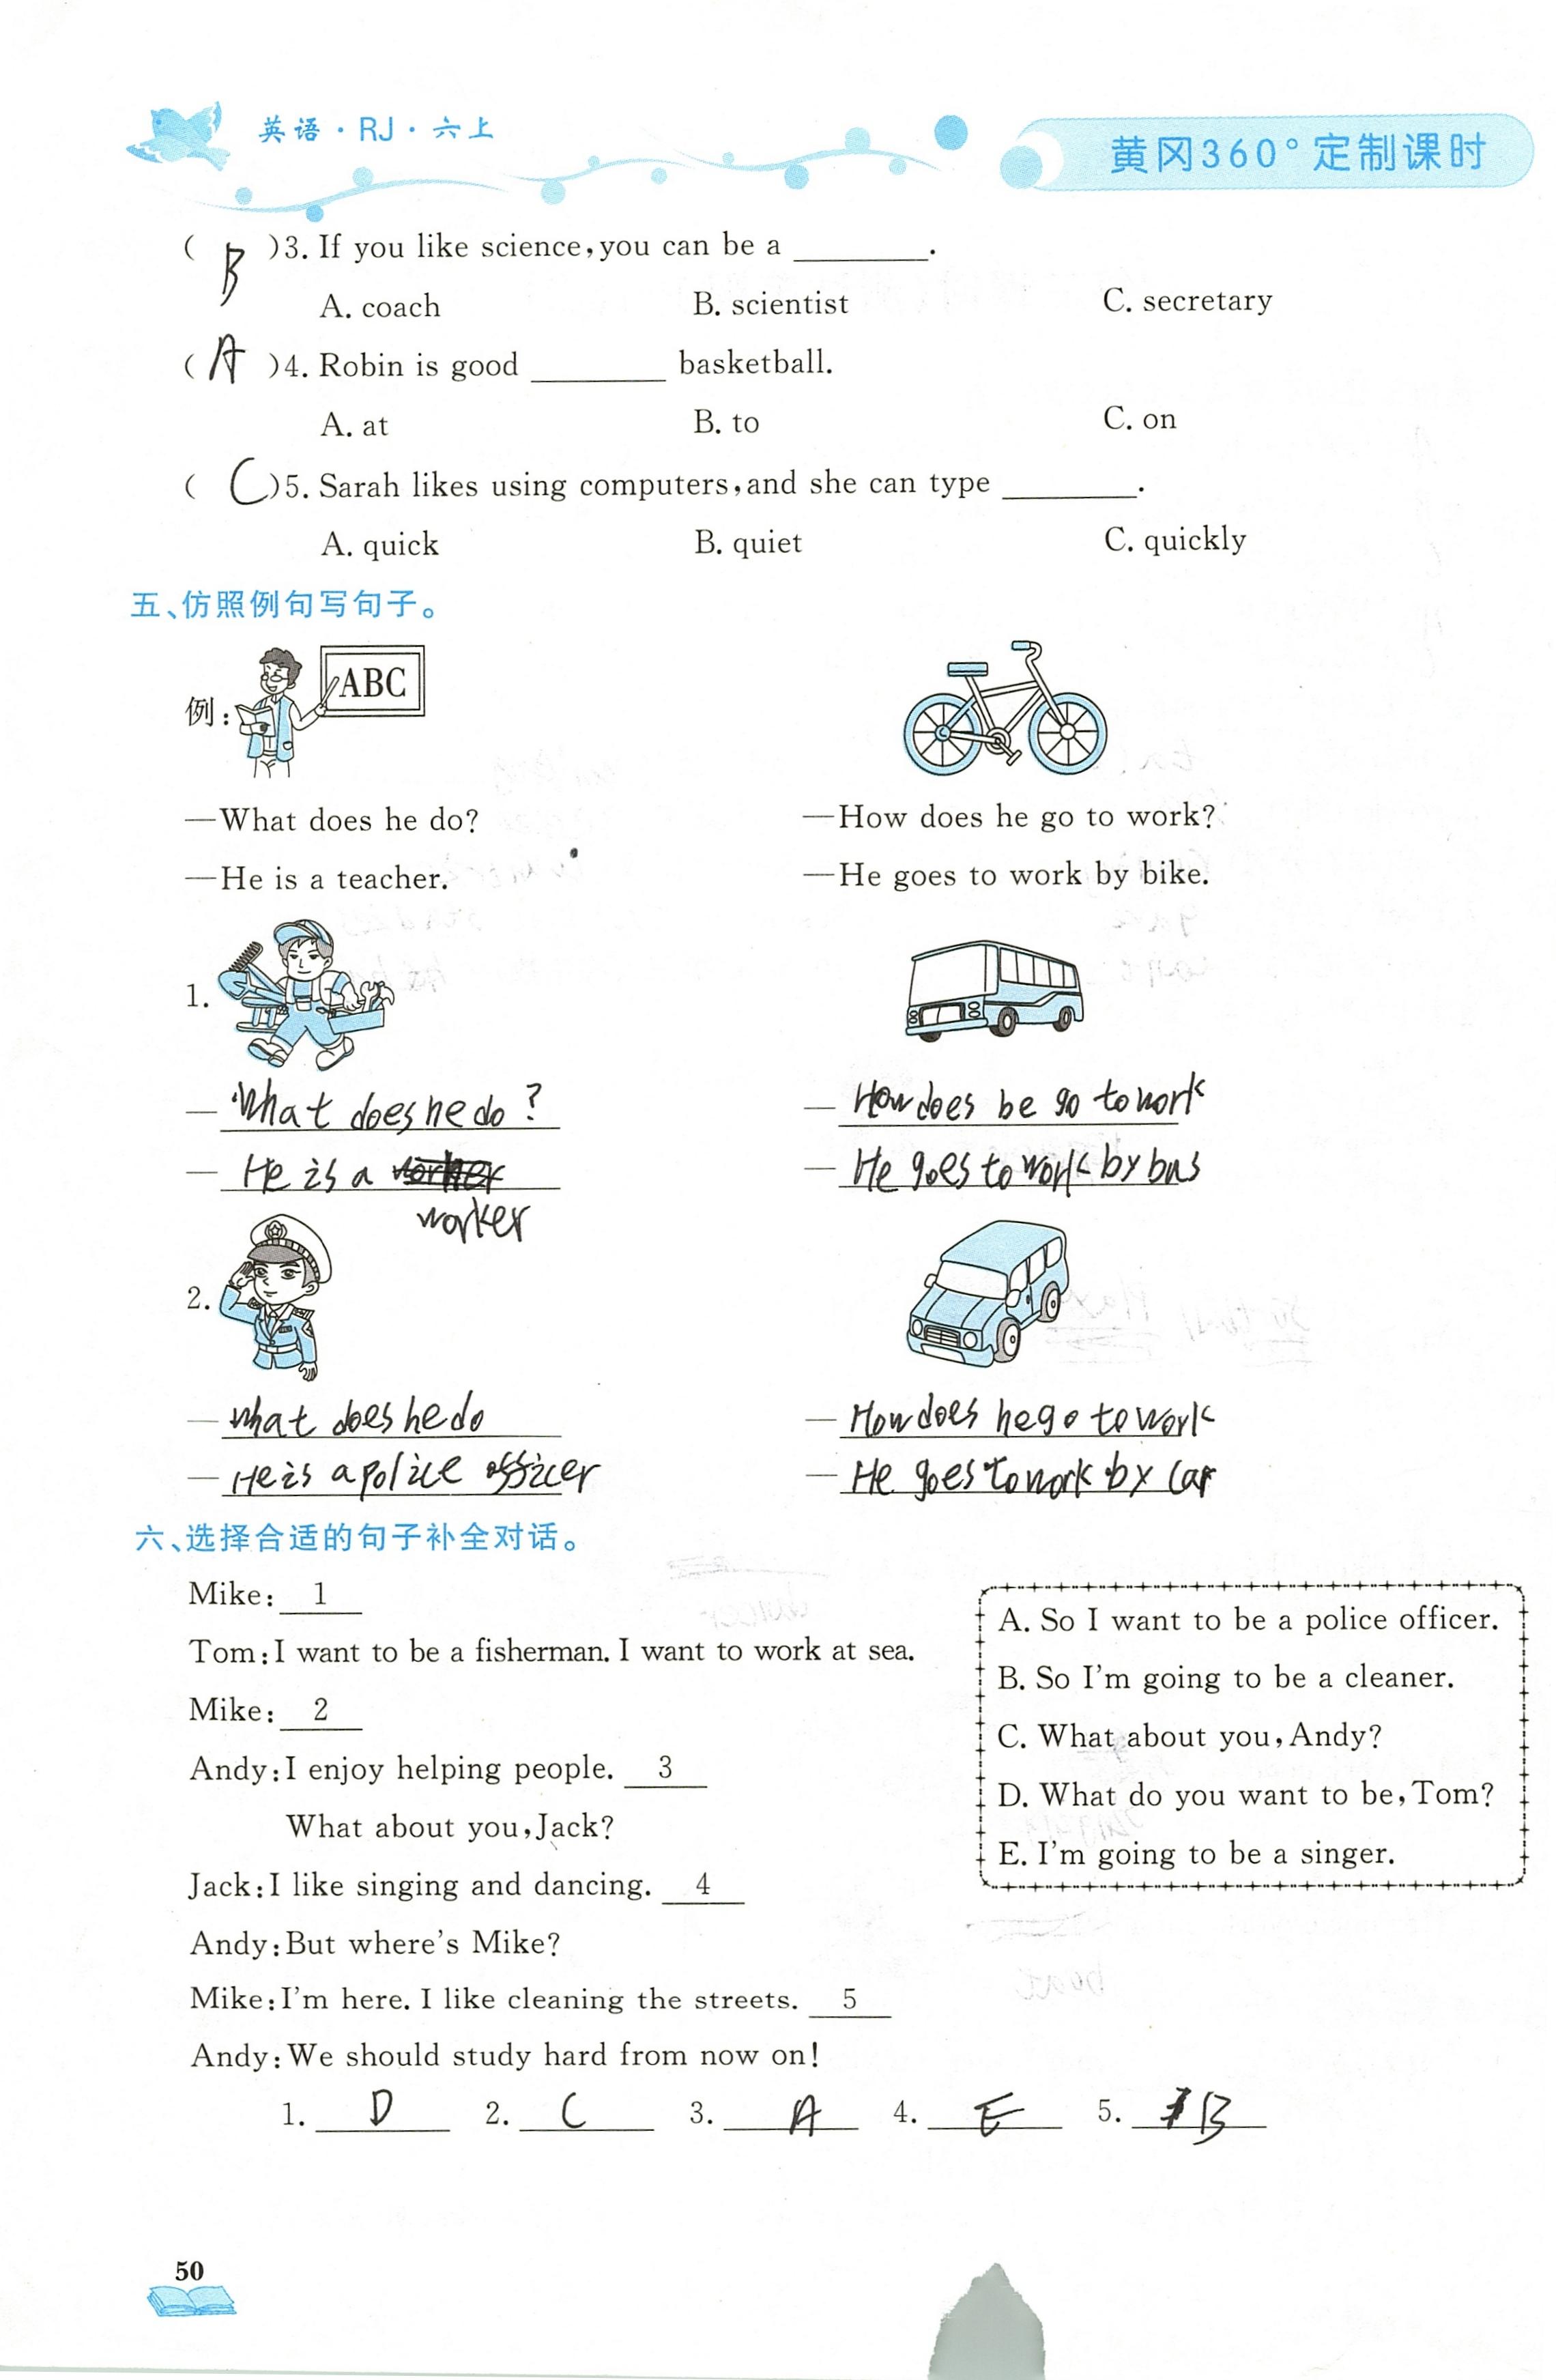 英语·RJ·六上
黄冈360°定制课时
( B )3. If you like science, you can be a ________.
A. coach B. scientist C. secretary
( A )4. Robin is good ________ basketball.
A. at B. to C. on
( C )5. Sarah likes using computers, and she can type ________.
A. quick B. quiet C. quickly
五、仿照例句写句子。
例:
ABC
—What does he do? —How does he go to work?
—He is a teacher. —He goes to work by bike.
1.
— What does he do? — How does be go to work
— He is a — He goes to work by bus
worker
2.
— what does he do — How does he go to work
— He is a police officer — He goes to work by car
六、选择合适的句子补全对话。
Mike: 1
Tom: I want to be a fisherman. I want to work at sea.
Mike: 2
Andy: I enjoy helping people. 3
What about you, Jack?
Jack: I like singing and dancing. 4
Andy: But where's Mike?
Mike: I'm here. I like cleaning the streets. 5
Andy: We should study hard from now on!
A. So I want to be a police officer.
B. So I'm going to be a cleaner.
C. What about you, Andy?
D. What do you want to be, Tom?
E. I'm going to be a singer.
1. D 2. C 3. A 4. E 5. B
50